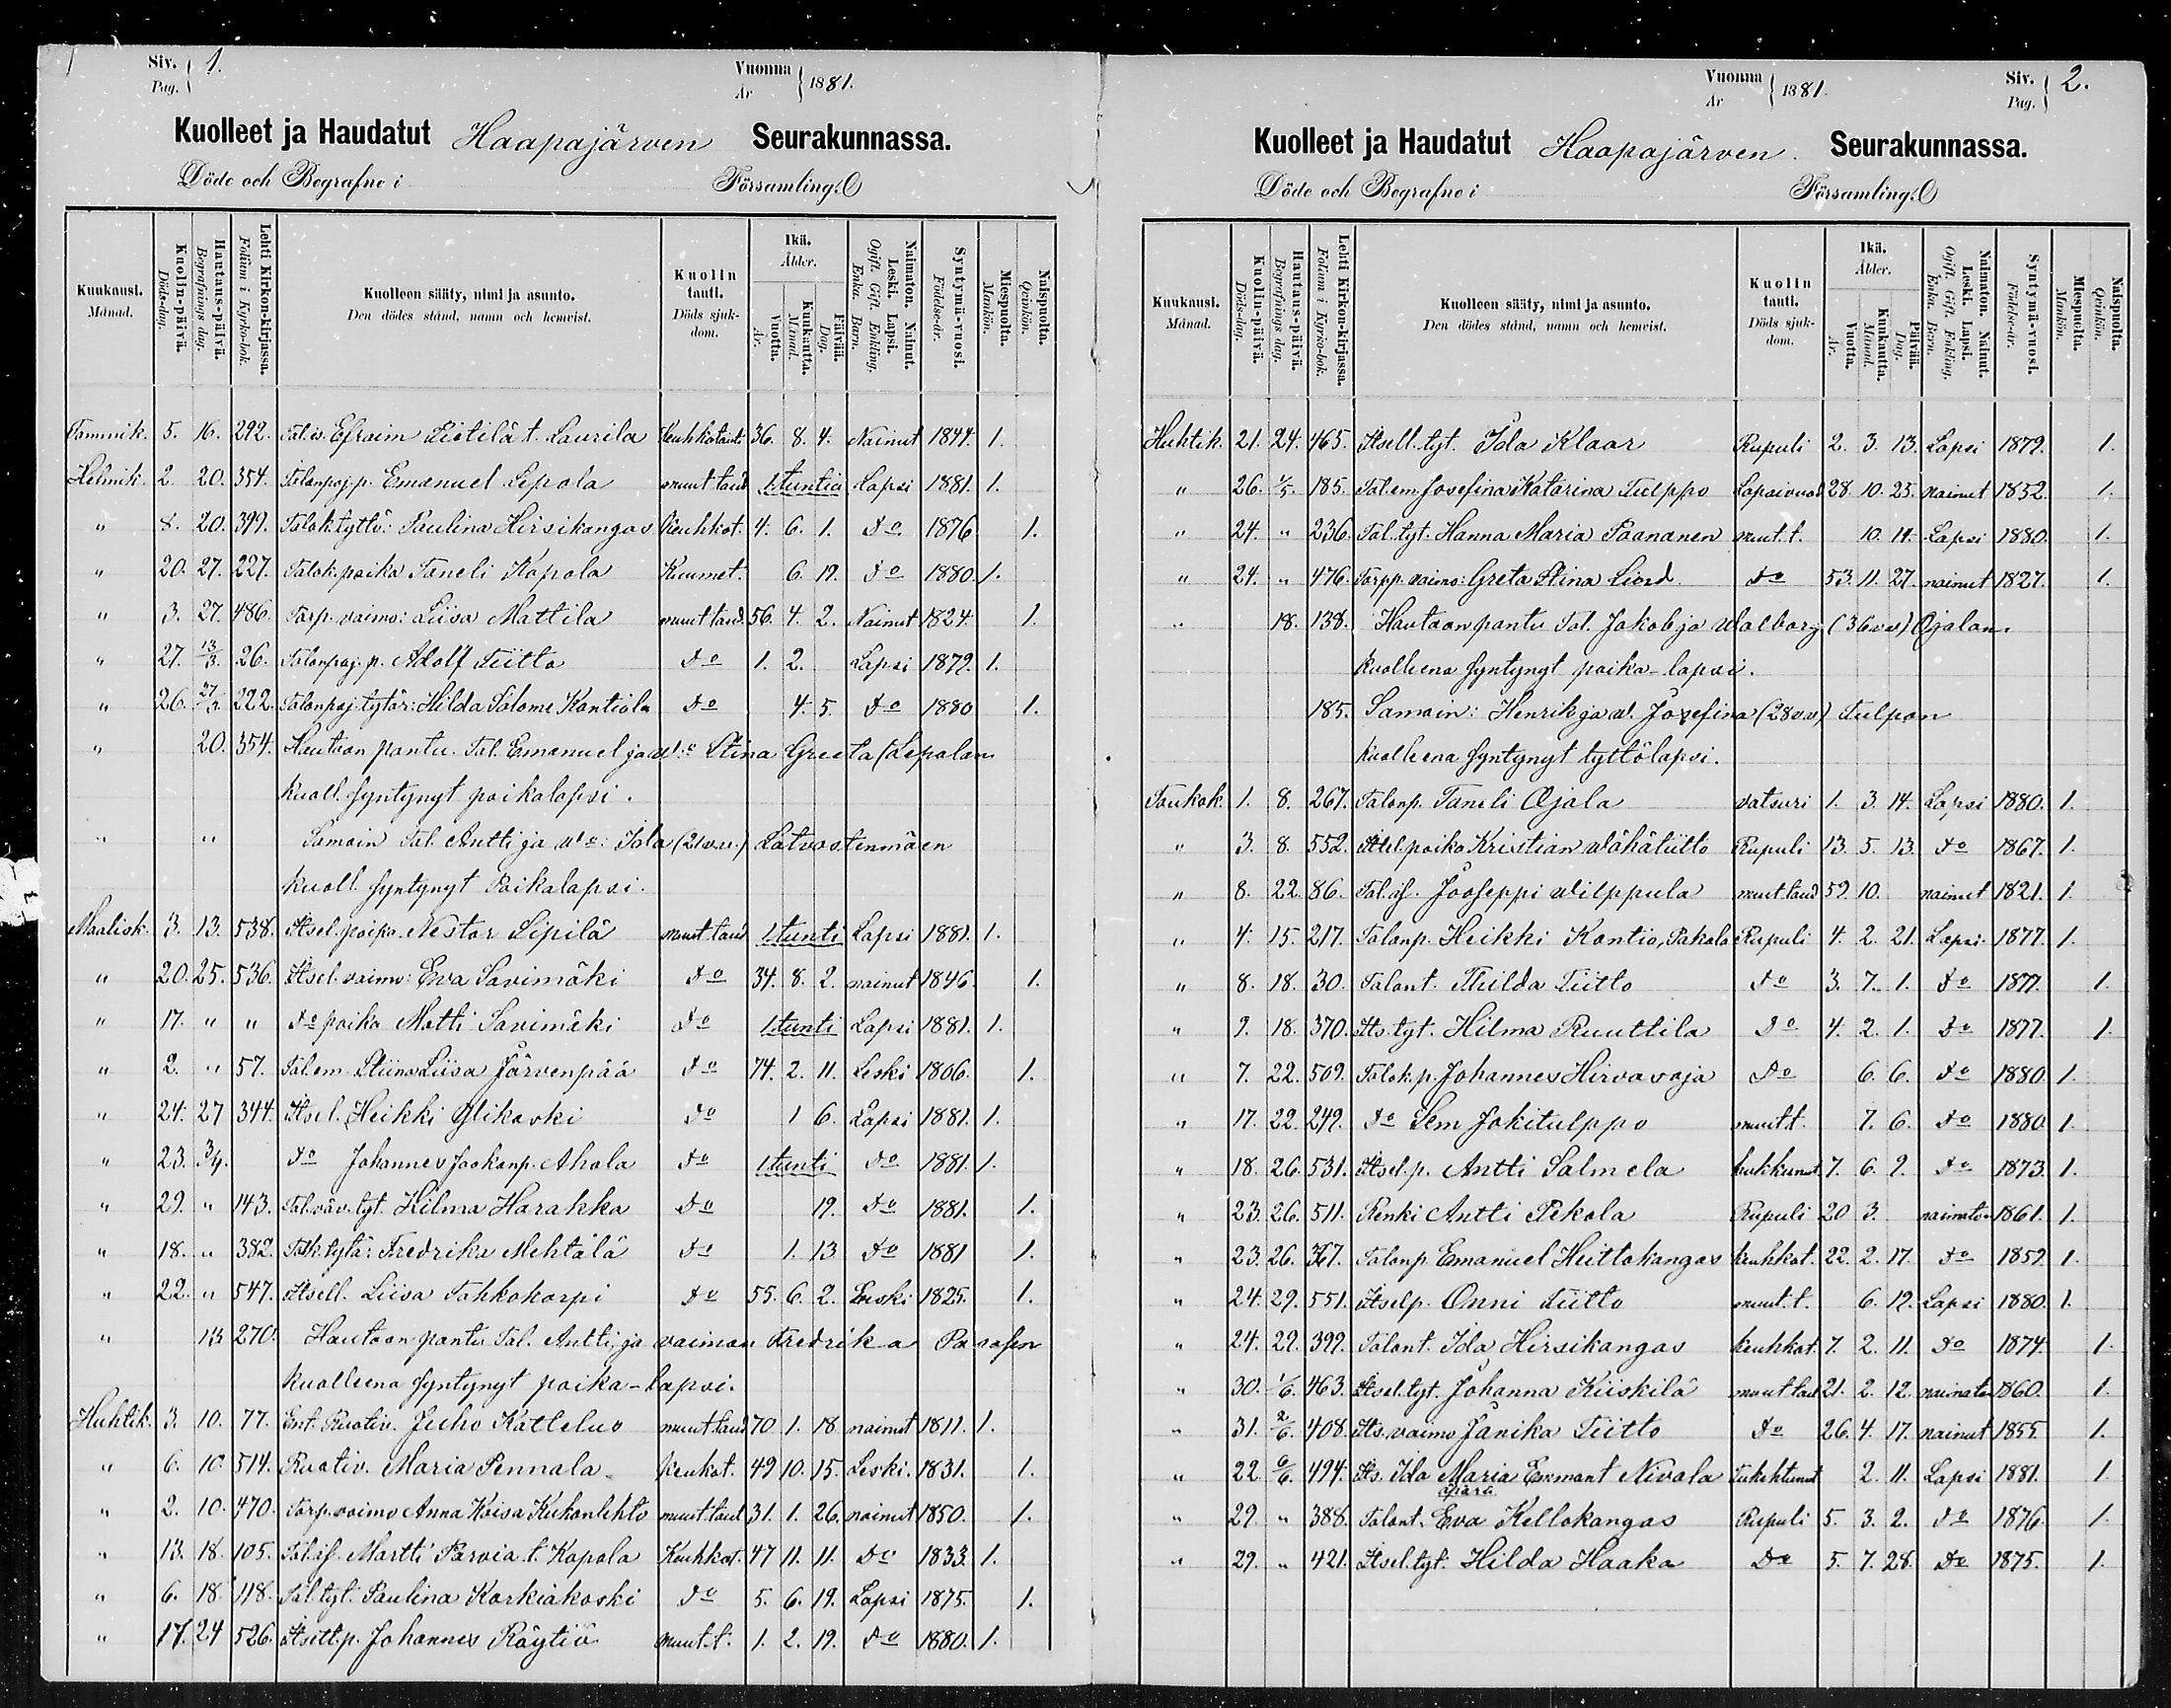 Siv. Pag. 1. Vuonna År 1881.
Kuolleet ja Haudatut Haapajärven Seurakunnassa.
Döde och Begrafne i Församling.
Kuukausi. Månad. Kuolin-päivä. Döds-dag. Hautaus-päivä. Begrafnings dag. Lehti Kirkon-kirjassa. Folium i Kyrko-bok. Kuolleen sääty, nimi ja asunto. Den dödes stånd, namn och hemvist. Kuolin tauti. Döds sjukdom. Ikä. Ålder. Vuotta. År. Kuukautta. Månad. Päivää. Dag. Naimaton. Nainut. Leski. Lapsi. Ogift. Gift. Enkling. Enka. Barn. Syntymä-vuosi. Födelse-år. Miespuolta. Mankön. Naispuolta. Qvinkön.
Tammik. 5. 16. 292. Tal. is. Efraim Lietilä t. Laurila Keuhkotauti 36. 8. 4. Nainut 1844. 1.
Helmik. 2 20. 354. Talonpoj. p. Emanuel Lepola muut taud 1 tuntia Lapsi 1881. 1.
" 8. 20. 399. Talok. tyttö: Paulina Hirsikangas Keuhkot. 4. 6. 1. Do 1876 1.
" 20. 27. 227. Talok. poika Taneli Kapola Kuumet. 6. 19. Do 1880. 1.
" 3. 27. 486. Torp. vaimo: Liisa Mattila muut taud. 56. 4. 2. Nainut 1824. 1.
" 27. 13/3. 26. Talonpoj. p. Adolf Tiitto Do 1. 2. Lapsi 1879. 1.
" 26. 27/2 222. Talonpoj. tytär: Hilda Salome Kantiola Do 4. 5. Do 1880 1.
" 20. 354. Hautaan pantu Tal. Emanuel ja v:o Stina Greeta Lepolan
kuoll. syntynyt poikalapsi.
" " Samoin Tal. Antti ja v:o: Ida (21 v.v.) Latvastenmäen
kuoll. syntynyt Poikalapsi.
Maalisk. 3. 13. 538. Itsel. poika Nestor Sipilä muut taud 1 tunti Lapsi 1881. 1.
" 20. 25. 536. Itsel. vaimo: Eva Savimäki Do 34. 8. 2. nainut 1846. 1.
" 17. " " Do poika Matti Savimäki Do 1 tunti Lapsi 1881. 1.
" 2. " 57. Tal. em. Stiina Liisa Järvenpää Do 74. 2. 11. Leski 1806. 1.
" 24. 27 344. Itsel. Heikki Ylikoski Do 1 6. Lapsi 1881. 1.
" 23. 3/4. Do Johannes Jaakonp. Ahola Do 1 tunti Do 1881. 1.
" 29. " 143. Tal. väv. tyt. Hilma Harakka Do 19. Do 1881. 1.
" 18. " 382. Talk. tytä: Fredrika Mehtälä Do 1. 13 Do 1881 1.
" 22. " 547. Itsell. Liisa Tahkokorpi Do 55. 6. 2. Leski 1825. 1.
" 13 270. Hautaan pantu Tal. Antti ja vaiman Fredrika
kuolleena syntynyt poika-lapsi.
Huhtik. 3. 10. 77. Ent. Ruotiv. Juho Katteluo muut taud 70 1. 18 nainut 1811. 1.
" 6. 10 514. Ruotiv. Maria Pennala Keuhkot. 49 10. 15. Leski. 1831. 1.
" 2. 10. 470. Torp. vaimo Anna Kaisa Kukonlehto muut taud 31. 1. 26. nainut 1850. 1.
" 13. 18. 105. Tal. is. Martti Parvia t. Kapola Keuhkot. 47 11. 11. Do 1833. 1.
" 6. 18. 118. Tal. tyt. Paulina Karkiakoski Do 5. 6. 19. Lapsi 1875. 1.
" 17. 24 526. Itsell. p. Johannes Räytiö muut. t. 1. 2. 19. Do 1880. 1.
Vuonna År 1881. Siv. Pag. 2.
Kuolleet ja Haudatut Haapajärven Seurakunnassa.
Döde och Begrafne i Församling.
Kuukausi. Månad. Kuolin-päivä. Döds-dag. Hautaus-päivä. Begrafnings dag. Lehti Kirkon-kirjassa. Folium i Kyrko-bok. Kuolleen sääty, nimi ja asunto. Den dödes stånd, namn och hemvist. Kuolin tauti. Döds sjukdom. Ikä. Ålder. Vuotta. År. Kuukautta. Månad. Päivää. Dag. Naimaton. Nainut. Leski. Lapsi. Ogift. Gift. Enkling. Enka. Barn. Syntymä-vuosi. Födelse-år. Miespuolta. Mankön. Naispuolta. Qvinkön.
Huhtik. 21. 24. 465. Itsell. tyt. Ida Klaar Rupuli 2. 3. 13. Lapsi 1879. 1.
" 26. 1/5. 185. Tal. em. Josefina Katarina Tulppo Lapsivuod 28. 10. 25. nainut 1852. 1.
" 24. " 236. Tal. tyt. Hanna Maria Paananen muut. t. 10. 14. Lapsi 1880. 1.
" 24. " 476. Torpp. vaimo: Greta Stina Liord Do 53. 11. 27. nainut 1827. 1.
" 18. 138. Hautaan pantu Tal. Jakob ja Walborg (36 v.v) Ojalan.
kuolleena syntynyt poika-lapsi.
185. Samoin: Henrik ja v. Josefina (28 v.v) Tulpon
kuolleena syntynyt tyttölapsi.
Toukok. 1. 8. 267. Talonp. Taneli Ojala vatsuri 1. 3. 14. Lapsi 1880. 1.
" 3. 8. 552. Itsel. poika Kristian Vähätiitto Rupuli 13. 5. 13. Do 1867. 1.
" 8. 22. 86. Tal. is. Jooseppi Wilppula muut taud 59. 10. nainut 1821. 1.
" 4. 15. 217. Talonp. Heikki Kontio, Pakola Rupuli 4. 2. 21. Lapsi 1877. 1.
" 8. 18. 30. Talont. Thilda Tiitto Do 3. 7. 1. Do 1877. 1.
" 9. 18. 370. Its. tyt. Hilma Ruuttila Do 4. 2. 1. Do 1877. 1.
" 7. 22. 509. Talok. p. Johannes Hirvavoja Do 6. 6. Do 1880. 1.
" 17. 22. 249. Do Sem Jokitulppo muut. t. 7. 6. Do 1880. 1.
" 18. 26. 531. Itsel. p. Antti Salmela hukkunut 7. 6. 9. Do 1873. 1.
" 23. 26. 511. Renki Antti Pekola Rupuli 20 3. naimaton 1861. 1.
" 23. 26. 367. Talonp. Emanuel Heittokangas Keuhkot. 22. 2. 17. Do 1859. 1.
" 24. 29. 551. Itselp. Onni Tiitto muut. t. 6. 19. Lapsi 1880. 1.
" 24. 29. 399. Talont. Ida Hirsikangas keuhkot. 7. 2. 11. Do 1874. 1.
" 30. 1/6. 463. Itsel. tyt. Johanna Kiiskilä muut taud 21. 2. 12. naimaton 1860. 1.
" 31. 2/6. 408. Its. vaimo Janika Tiitto Do 26. 4. 17. nainut 1855. 1.
" 22. 6/6. 494. Its. Ida Maria Emmant Nivala Tukehtunut 2. 11. Lapsi 1881. 1
apara
" 29. " 388. Talont. Eva Kellokangas Rupuli 5. 3. 2. Do 1876. 1.
" 29. " 421. Itsel. tyt. Hilda Haaka Do 5. 7. 28. Do 1875. 1.